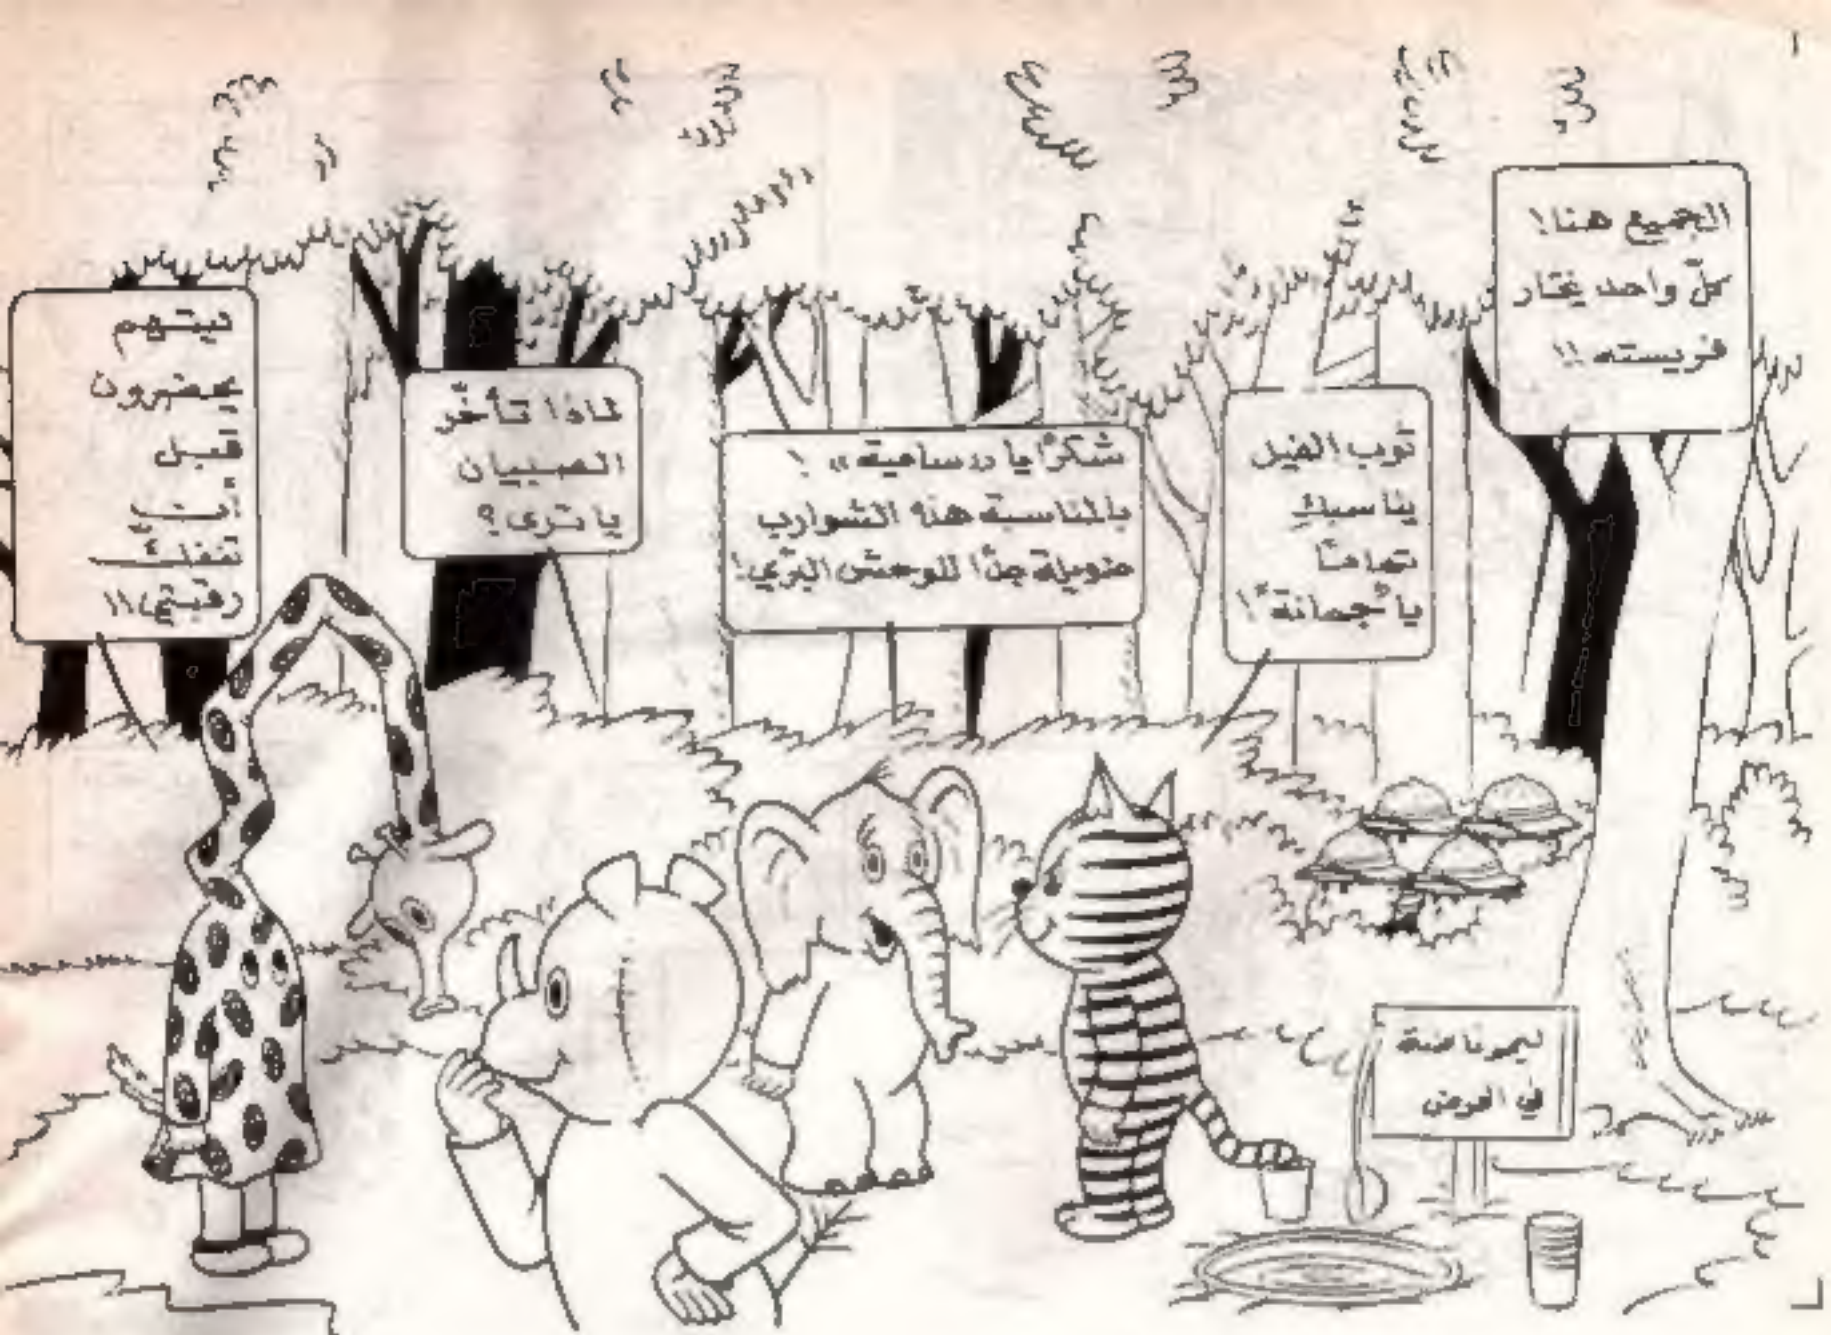 الجميع هنا!
كلّ واحد يختار
فريسته!!
ثوب الفيل
يناسبكِ
تمامًا
يا "جمانة"!
شكرًا يا «سامية»!
بالمناسبة هذه الشوارب
طويلة جدًّا للوحش البرّي!
لماذا تأخّر
الصبيان
يا ترى؟
ليتهم
يحضرون
قبل
أن
تنفكّ
رقبتي!!
ليموناضة
في الحوض